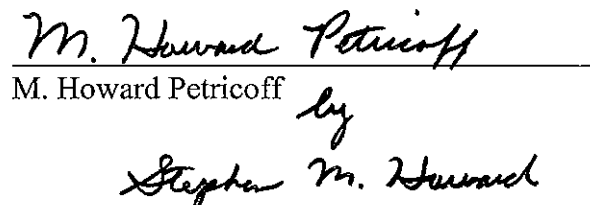 M. Howard Petricoff
M. Howard Petricoff
by
Stephen M. Howard